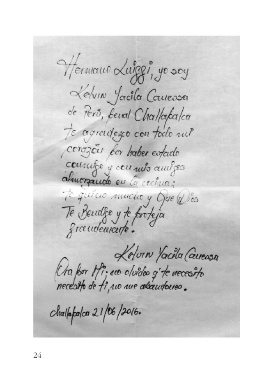 Hermano Luiggi, yo soy
Kelvin Yacila Carrasco
de Perú, penal Challapalca
te agradezco con todo mi
corazón por haber estado
conmigo y con mis amigos
almorzando en la cocina;
te quiero mucho y que Dios
Te Bendiga y te proteja
grandemente.
Kelvin Yacila Carrasco
Ora por Mi; no olvides q te necesito
necesito de ti, no me abandones.
Challapalca 21/06/2016.
24